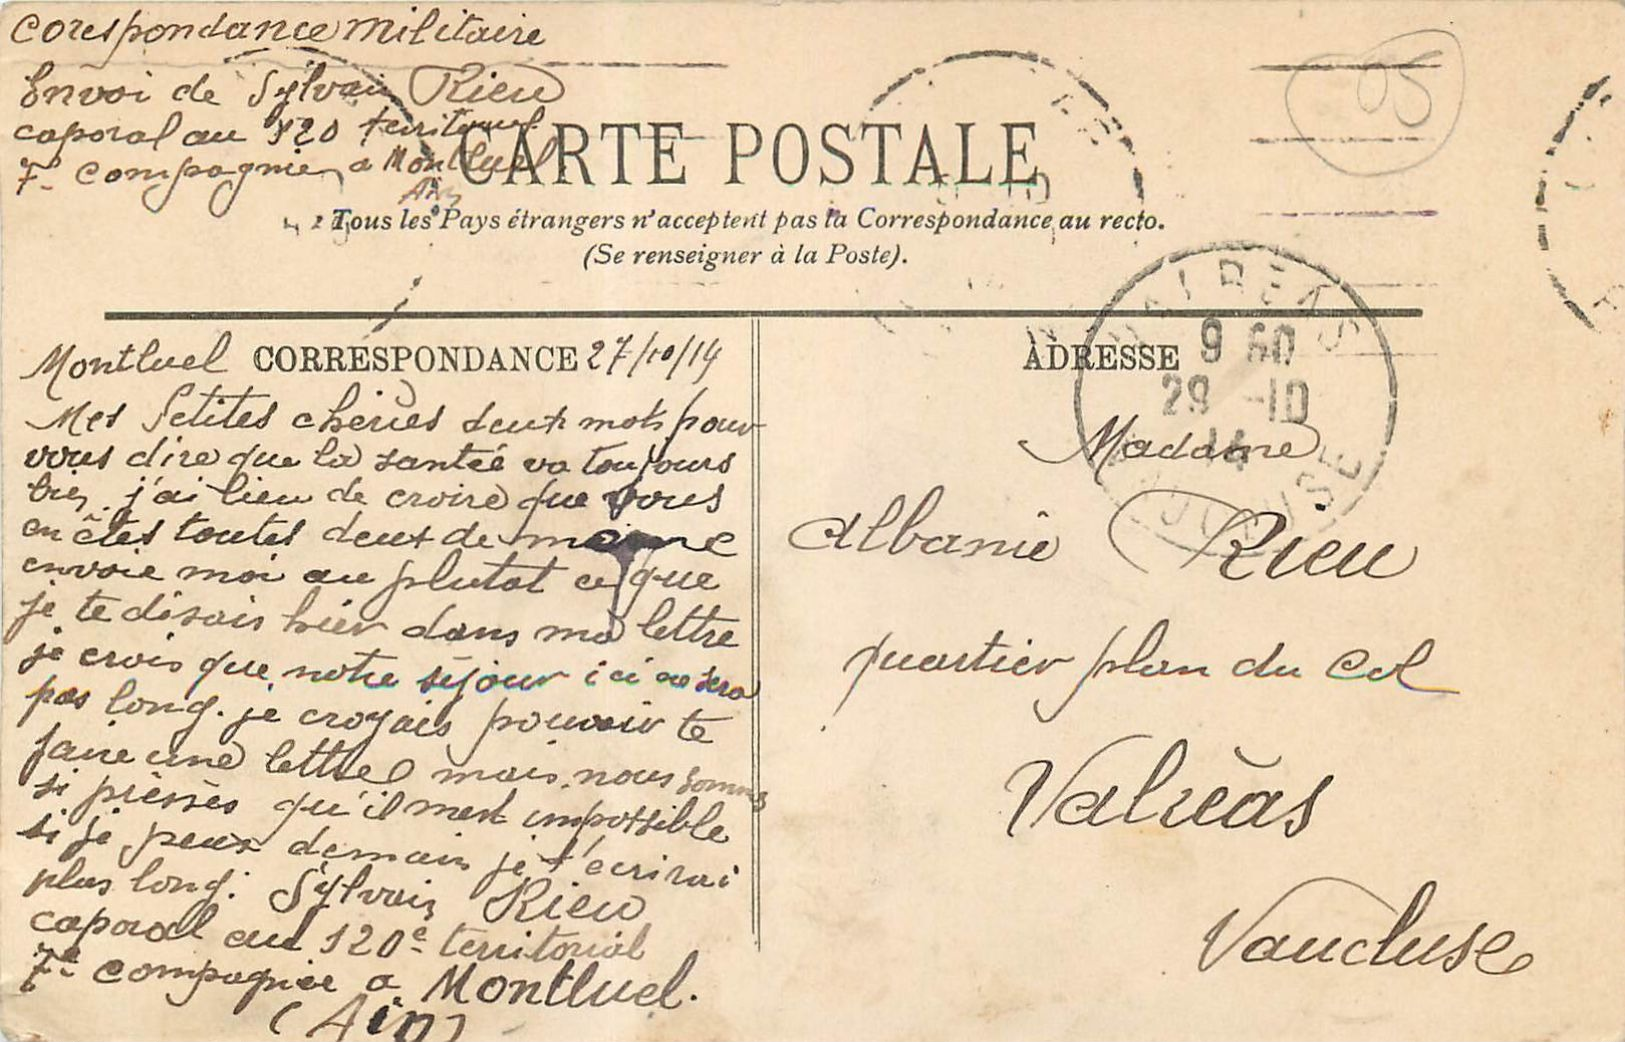 Corespondance militaire
Envoi de Sylvain Rieu
caporal au 120 territorial
7e Compagnie a Montluel
Ain
CARTE POSTALE
Tous les Pays étrangers n'acceptent pas la Correspondance au recto.
(Se renseigner à la Poste).
Montluel CORRESPONDANCE 27/10/14
Mes Petites chéries deux mots pour
vous dire que la santée va toujours
bien j'ai lieu de croire que vous
en êtes toutes deux de meme
envoie moi au plutot ce que
je te disais hier dans ma lettre
je crois que notre séjour ici ne sera
pas long. je croyais pouvoir te
faire une lettre mais nous sommes
si pressés qu'il mest impossible
si je peux demain je t'écrirai
plus long. Sylvain Rieu
caporal au 120e territorial
7e Compagnie a Montluel.
(Ain)
ADRESSE
VALREAS
9 50
29 -10
14
VAUCLUSE
Madame
Albanie Rieu
quartier plan du Col
Valréas
Vaucluse